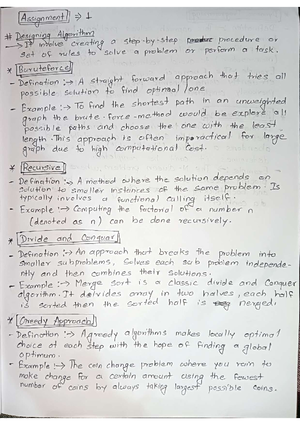 Assignment → 1
# Designing Algorithm
→ It involve creating a step-by-step procedure or
set of rules to solve a problem or perform a task.
* Bruteforce
- Definition :→ A straight forward approach that tries all
possible solution to find optimal one
- Example :→ To find the shortest path in an unweighted
graph the brute-force method would be explore all
possible paths and choose the one with the least
length. This approach is often impractical for large
graph due to high computational cost.
* Recursive
Definition :→ A method where the solution depends on
solution to smaller instances of the same problem. It
typically involves a functional calling itself.
- Example :→ Computing the factorial of a number n
(denoted as n) can be done recursively.
* Divide and Conquer
- Definition :→ An approach that breaks the problem into
smaller subproblems, solves each sub problem independe-
ntly and then combines their solutions.
- Example :→ Merge sort is a classic divide and Conquer
algorithm. It deivides array in two halves, each half
is sorted then the sorted half is merged.
* Greedy Approach
- Definition :→ Agreedy algorithms makes locally optimal
choice at each step with the hope of finding a global
optimum.
- Example :→ The coin change problem where you
make change for a certain amount using the fewest
number of coins by always taking largest possible coins.